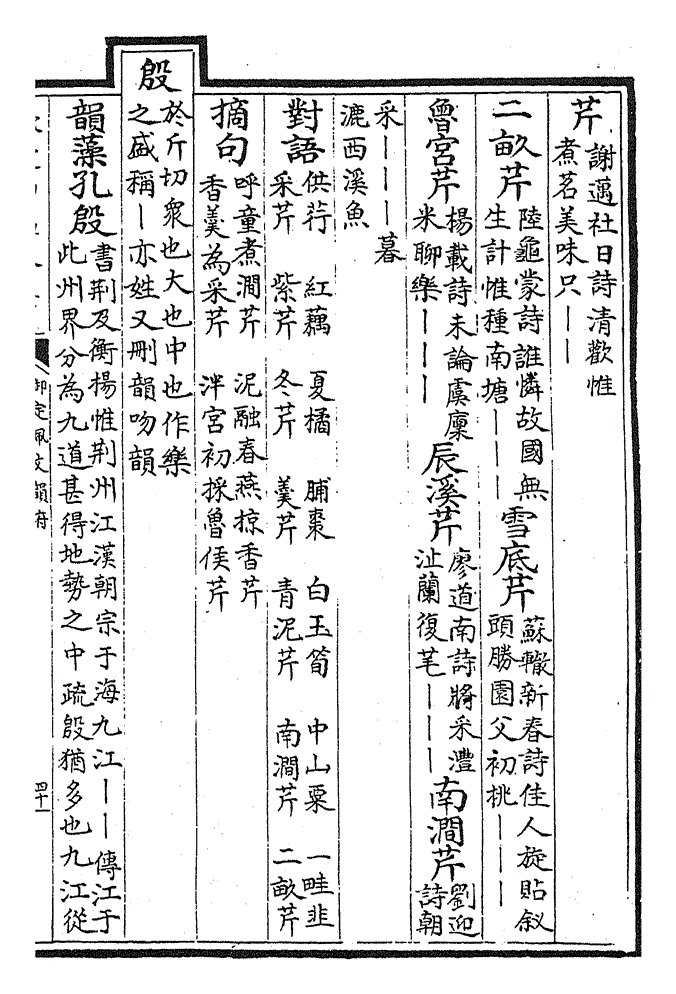 芹謝薖社日詩清歡惟
煮茗美味只——
二畝芹陸龜蒙詩誰憐故國無
生計惟種南塘———雪底芹蘇轍新春詩佳人旋貼釵
頭勝園父初挑———
魯宮芹楊載詩未論虞廩
米聊樂———辰溪芹廖道南詩將采澧
沚蘭復芼———南澗芹劉迎
詩朝
采———暮
漉西溪魚
對語供荇 紅藕 夏橘 脯棗 白玉筍 中山粟 一畦韭
采芹 紫芹 冬芹 羹芹 青泥芹 南澗芹 二畝芹
摘句呼童煮澗芹 泥融春燕掠香芹
香羹為采芹 泮宮初採魯侯芹
殷於斤切衆也大也中也作樂
之盛稱—亦姓又刪韻吻韻
韻藻孔殷書荆及衡楊惟荆州江漢朝宗于海九江——傳江于
此州界分為九道甚得地勢之中疏殷猶多也九江從
御定佩文韻府
四十一